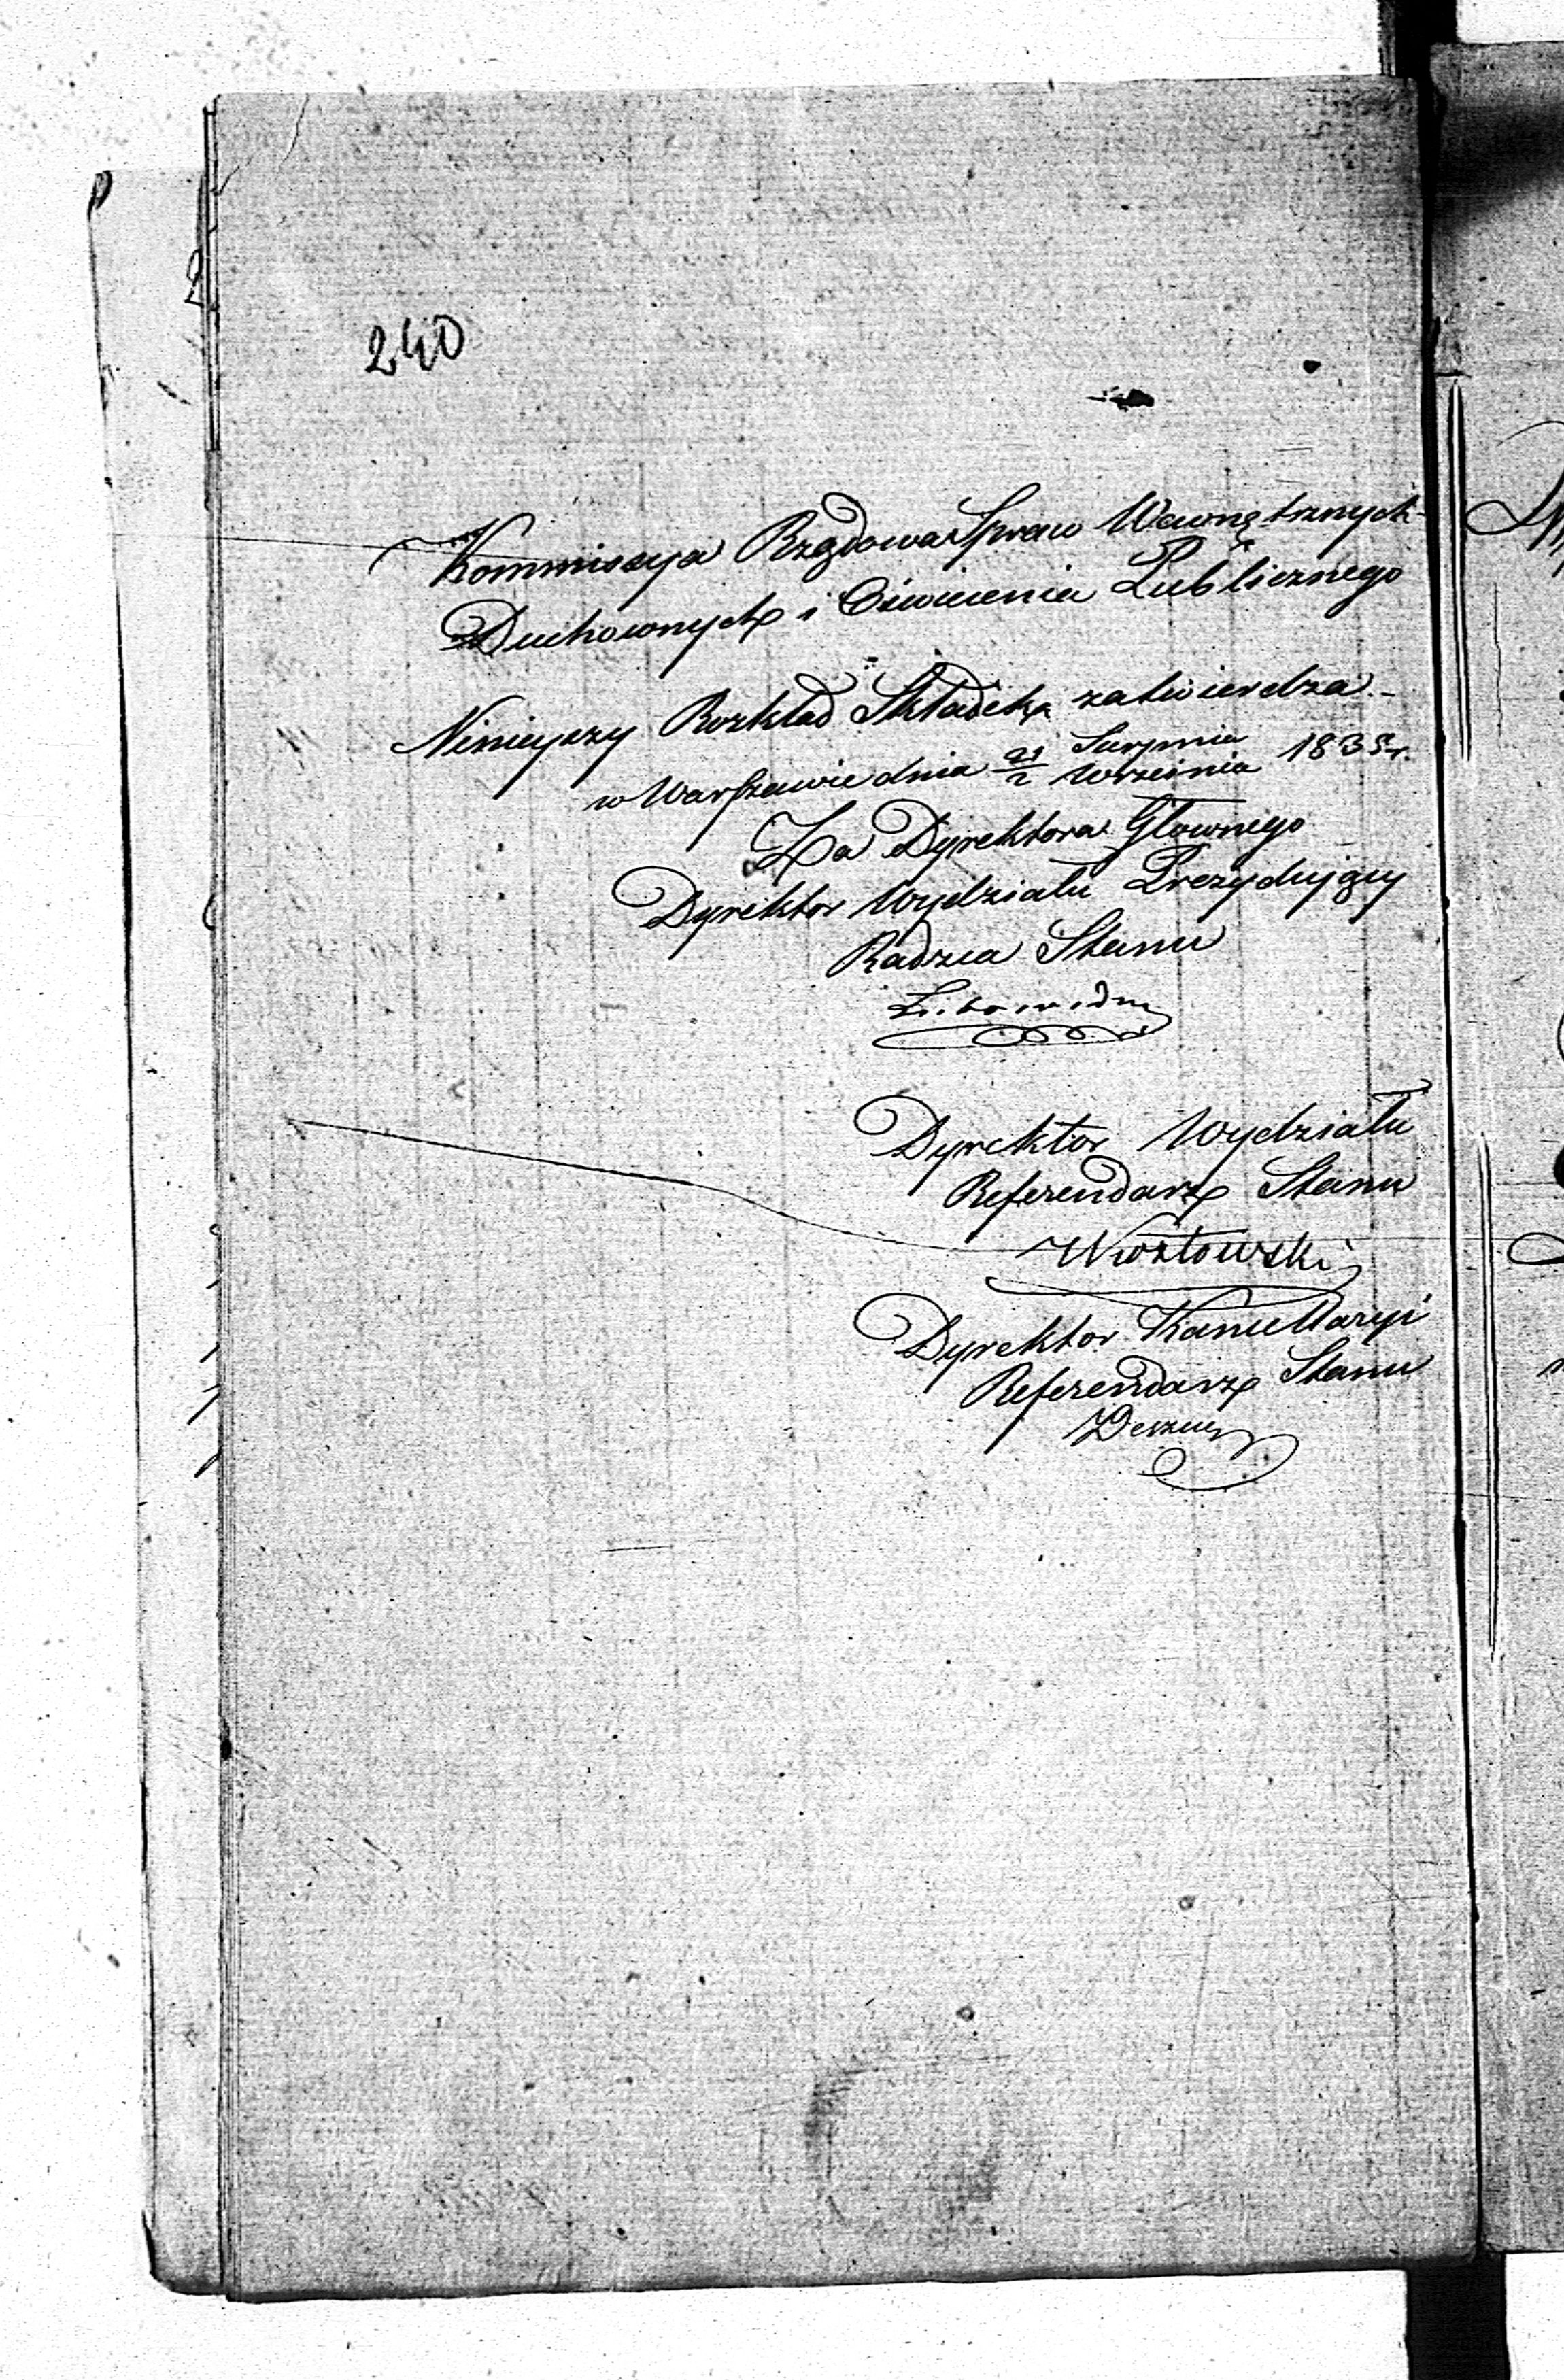 240
Kommissya Rządowa Spraw Wewnętrznych
Duchownych i Oświecenia Publicznego
Ninieyszy Rozkład Składek zatwierdza
w Warszawie dnia 21/2 Sierpnia/Września 1835 r.
Za Dyrektora Głownego
Dyrektor Wydziału Prezydujący
Radzca Stanu
Dyrektor Wydziału
Referendarz Stanu
Kozłowski
Dyrektor Kancellaryi
Referendarz Stanu